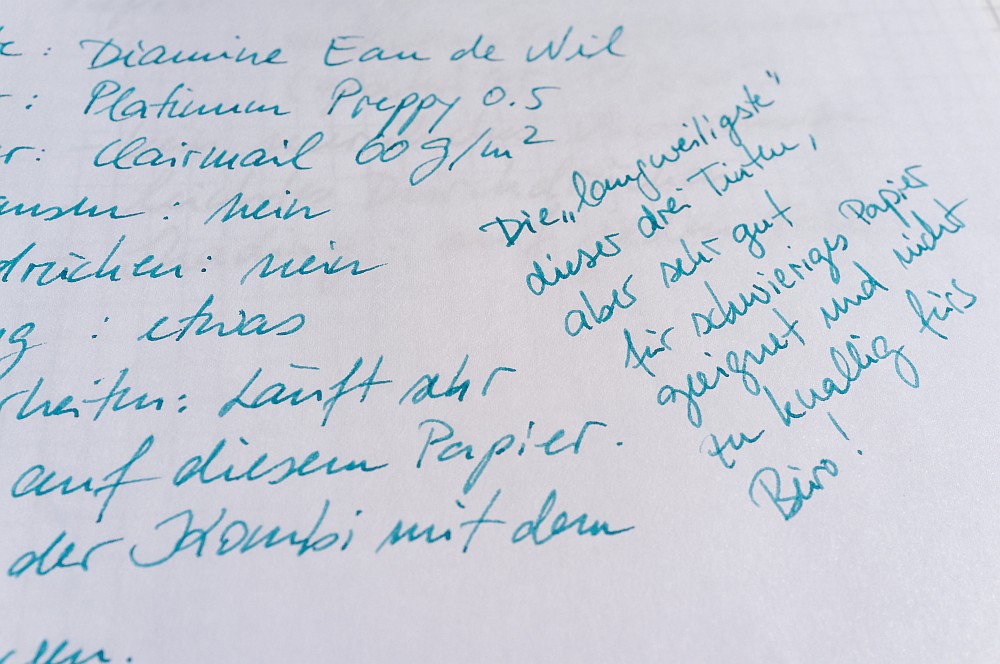 : Diamine Eau de Nil
: Platinum Preppy 0.5
: Clairmail 60g/m²
: nein
drücken: nein
: etwas
Läuft sehr
auf diesem Papier.
der Kombi mit dem
Die „langweiligste“
dieser drei Tinten,
aber sehr gut
für schwieriges Papier
geeignet und nicht
zu knallig fürs
Büro!